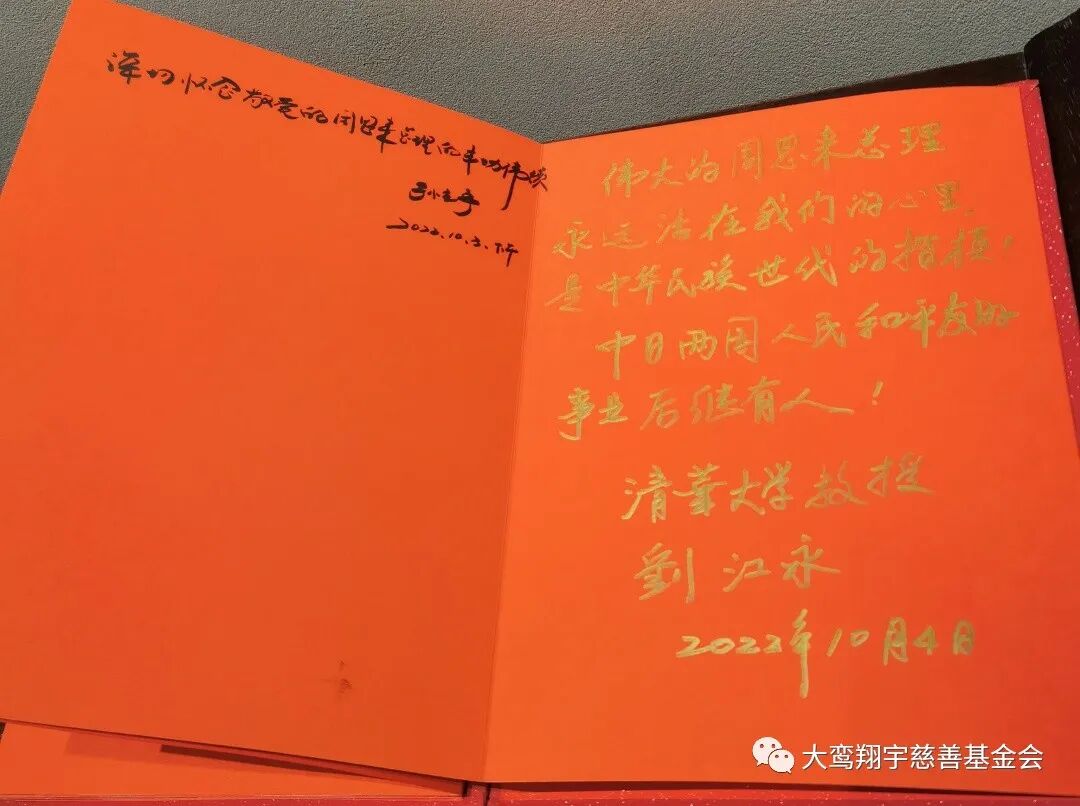 深切怀念敬爱的周恩来总理的丰功伟绩
2022.10.3.下午
伟大的周恩来总理
永远活在我们的心里,
是中华民族世代的楷模!
中日两国人民和平友好
事业后继有人!
清華大学教授
劉江永
2022年10月4日
大鸾翔宇慈善基金会